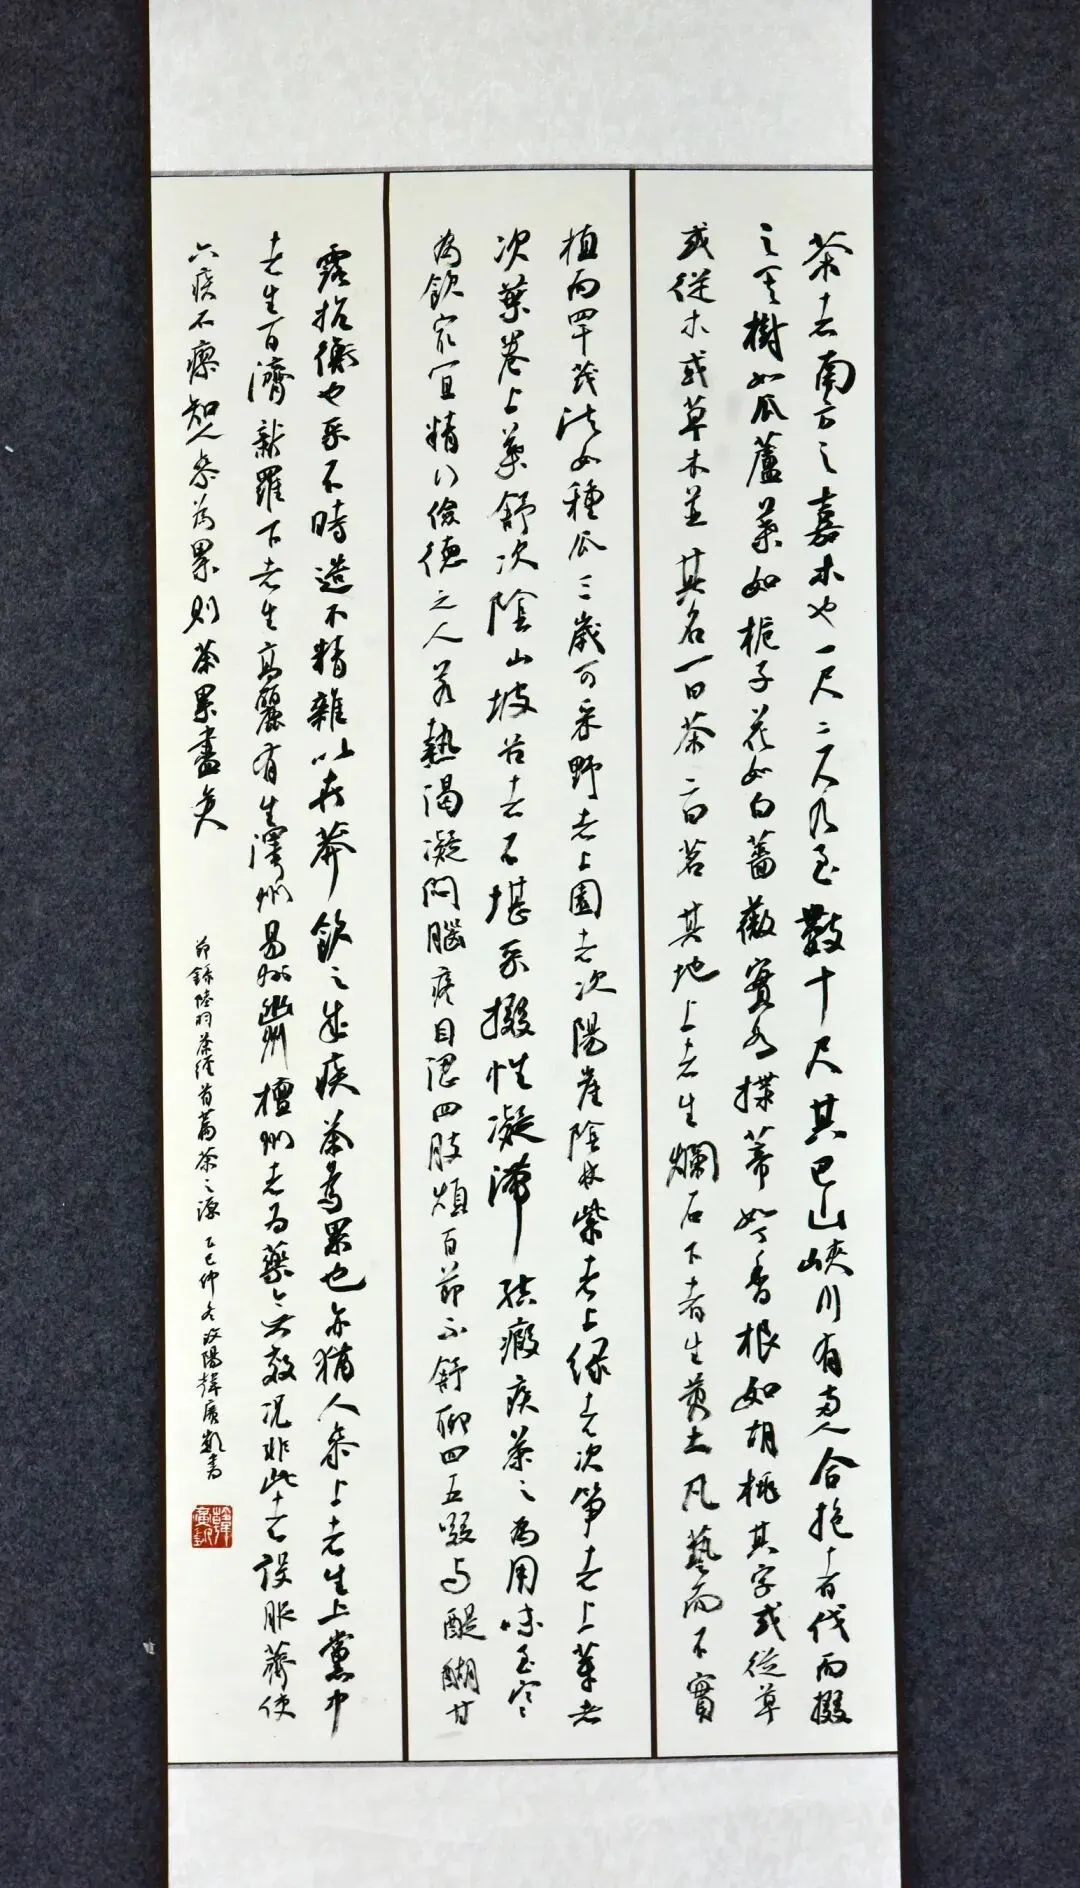 茶者南方之嘉木也一尺二尺乃至數十尺其巴山峽川有兩人合抱者伐而掇
之其樹如瓜蘆葉如梔子花如白薔薇實如栟櫚蒂如丁香根如胡桃其字或從草
或從木或草木並其名一曰茶二曰茗其地上者生爛石下者生黃土凡藝而不實
植而罕茂法如種瓜三歲可采野者上園者次陽崖陰林紫者上綠者次筍者上芽者
次葉卷上葉舒次陰山坡谷者不堪采掇性凝滯結瘕疾茶之為用味至寒
為飲最宜精行儉德之人若熱渴凝悶腦疼目澀四肢煩百節不舒聊四五啜與醍醐甘
露抗衡也采不時造不精雜以卉莽飲之成疾茶為累也亦猶人參上者生上黨中
者生百濟新羅下者生高麗有生澤州易州幽州檀州者為藥無效況非此者設服薺使
六疾不瘳知人參為累則茶累盡矣
節錄陸羽茶經首篇茶之源乙巳仲冬 陽韓廣 書